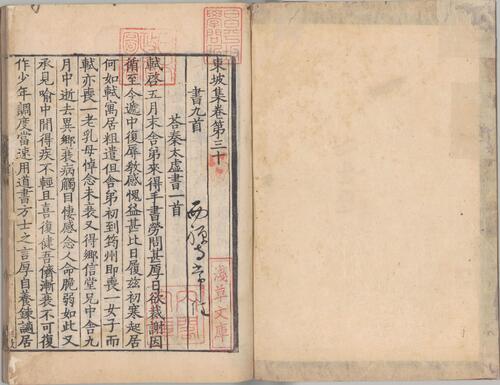 昌平坂
學問所
東坡集卷第三十
書九首
荅秦太虛書一首
軾啓五月末舍弟來得手書勞問甚厚日欲裁謝因
循至今遞中復辱教感愧益甚比日履茲初寒起居
何如軾寓居粗遣但舍弟初到筠州即喪一女子而
軾亦喪一老乳母悼念未衰又得鄉信堂兄中舍九
月中逝去異鄉衰病觸目悽感念人命脆弱如此又
承見喻中間得疾不輕且喜復健吾儕漸衰不可復
作少年調度當速用道書方士之言厚自養鍊謫居
淺草文庫